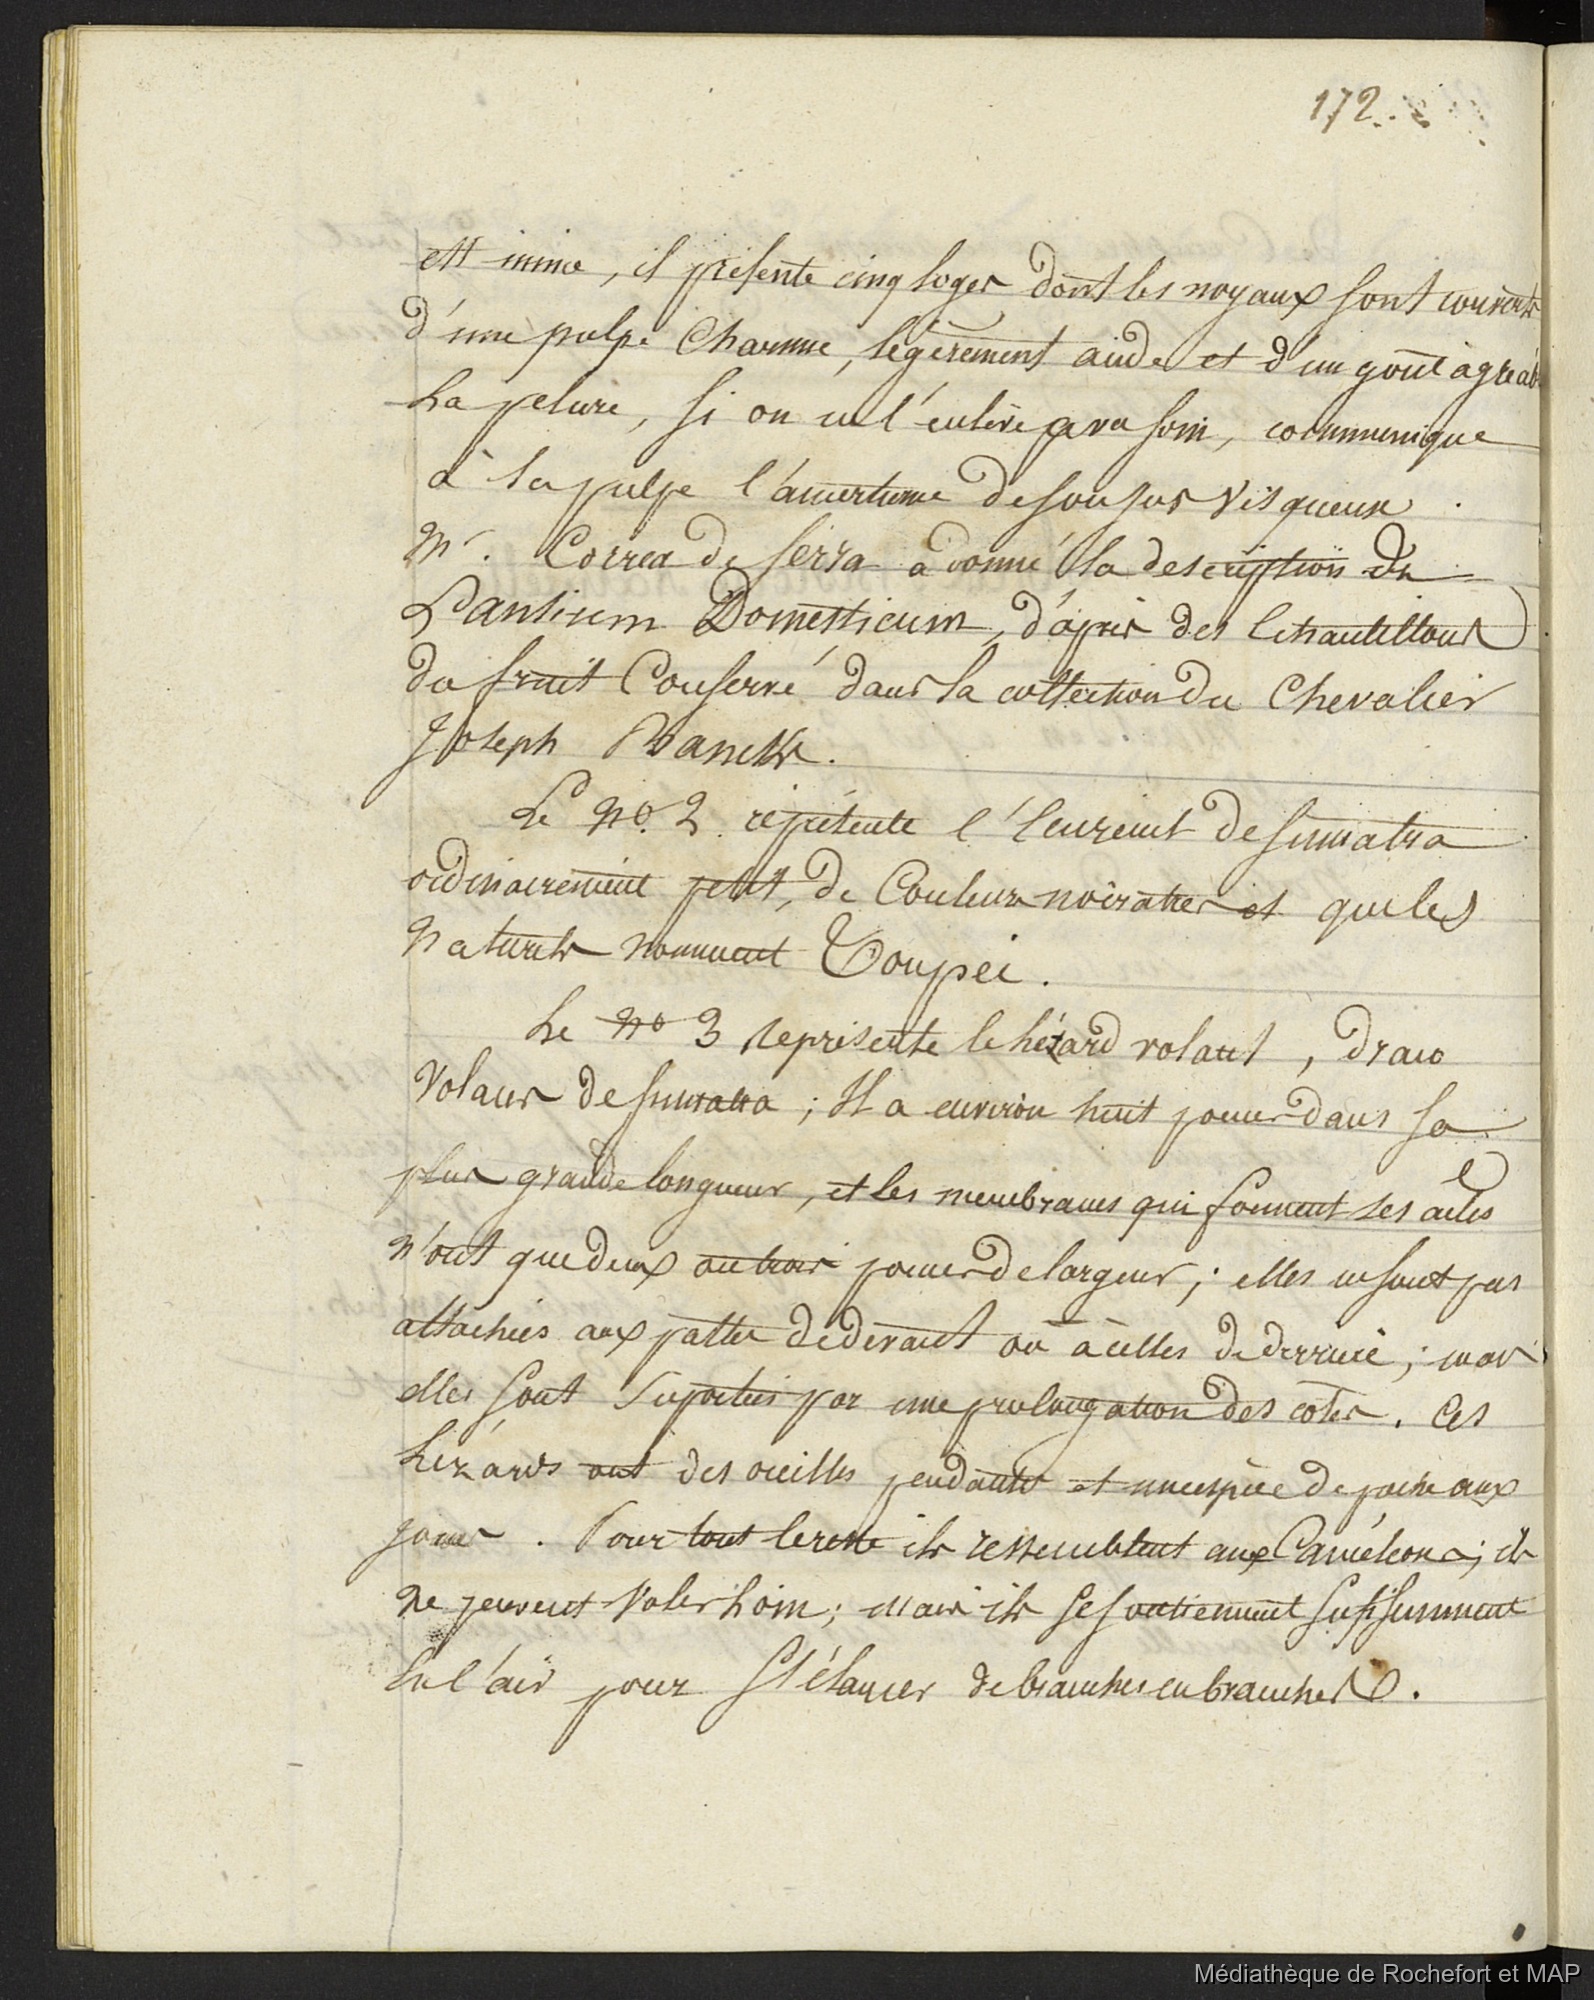 172.
est mince, il présente cinq loges dont les noyaux sont couverts
d'une pulpe Charnue, légèrement acide et d'un goût agréab
La pelure, si on ne l'enlève avec soin, communique
à la pulpe l'amertume de son jus Visqueux.
Mr. Correa de Serra a donné la description du
Lansium Domesticum, d'après des Echantillons
du fruit Conservé dans la collection du Chevalier
Joseph Banckr.
Le No. 2 représente l'Ecureuil de Sumatra
ordinairement petit, de Couleur noiratre et que les
Naturels nomment Toupei.
Le No 3 représente le Lézard volant, draco
Volans de Sumatra; Il a environ huit pouces dans sa
plus grande longueur, et les membranes qui forment ses ailes
n'ont que deux ou trois pouces de largeur; elles ne sont pas
attachées aux pattes de devant ou à celles de derriere; mais
elles sont Suportées par une prolongation des cotes. Ces
Lézards ont des oreilles pendantes et une espèce de poche aux
joues. Pour tout le reste ils ressemblent aux Caméleons; ils
ne peuvent Voler Loin; mais ils se soutiennent suffisamment
En l'air pour S'élancer de branches en branches.
Médiathèque de Rochefort et MAP